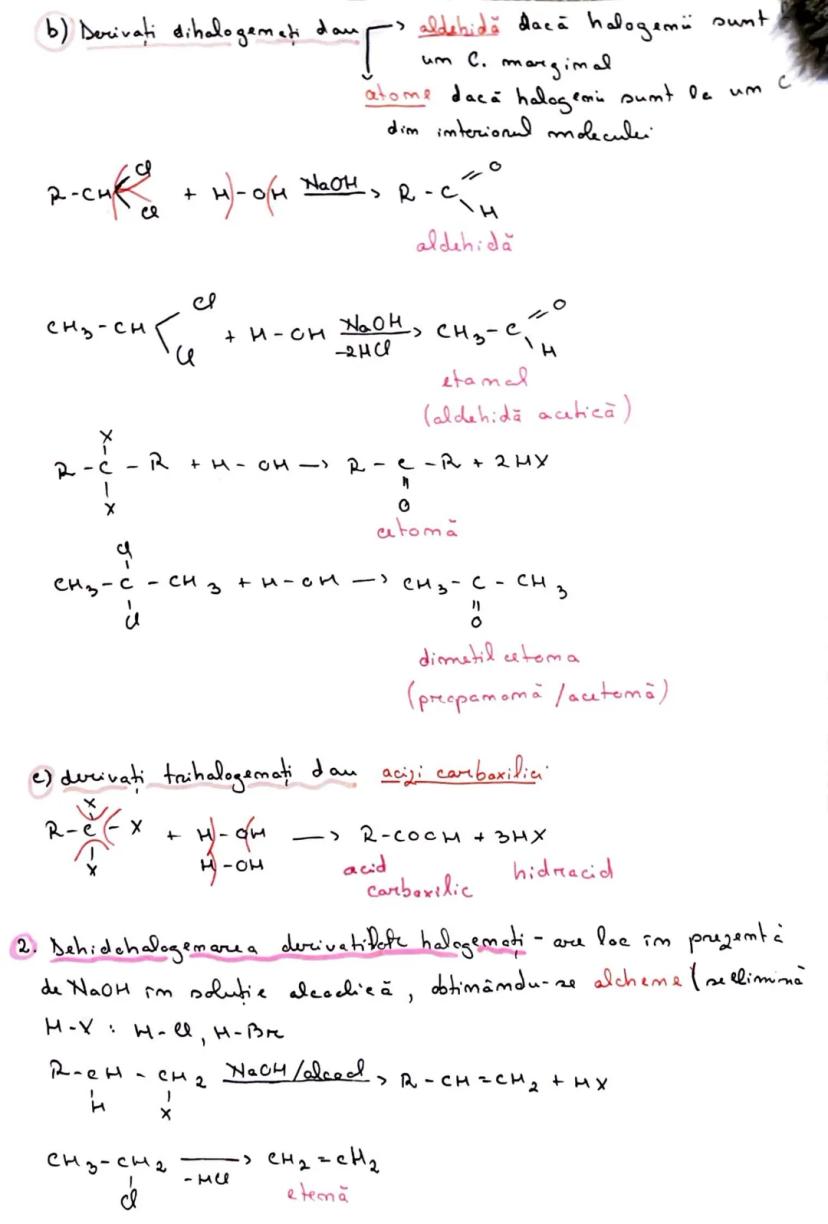 b) Derivați dihalogenați dau → aldehidă dacă halogenii sunt
un C. marginal
cetone dacă halogenii sunt la un C
din interiorul moleculei
R-CH Cl Cl + H-OH NaOH → R-C =O \H
aldehidă
CH3-CH Cl Cl + H-OH NaOH -2HCl → CH3-C =O \H
etanal
(aldehidă acetică)
X
R-C-R + H-OH → R-C-R + 2HX
X O
cetonă
Cl
CH3-C-CH3 + H-OH → CH3-C-CH3
Cl O
dimetil cetona
(propanonă/acetonă)
c) derivați trihalogenați dau acizi carboxilici
X
R-C-X + H-OH → R-COOH + 3HX
X H-OH acid hidracid
carboxilic
2. Dehidohalogenarea derivatilor halogenați - are loc în prezentă
de NaOH în soluție alcoolică, obtinându-se alchene (se elimină
H-X : H-Cl, H-Br
R-CH-CH2 NaOH/alcool → R-CH=CH2 + HX
H X
CH3-CH2 -HCl → CH2=CH2
Cl etenă